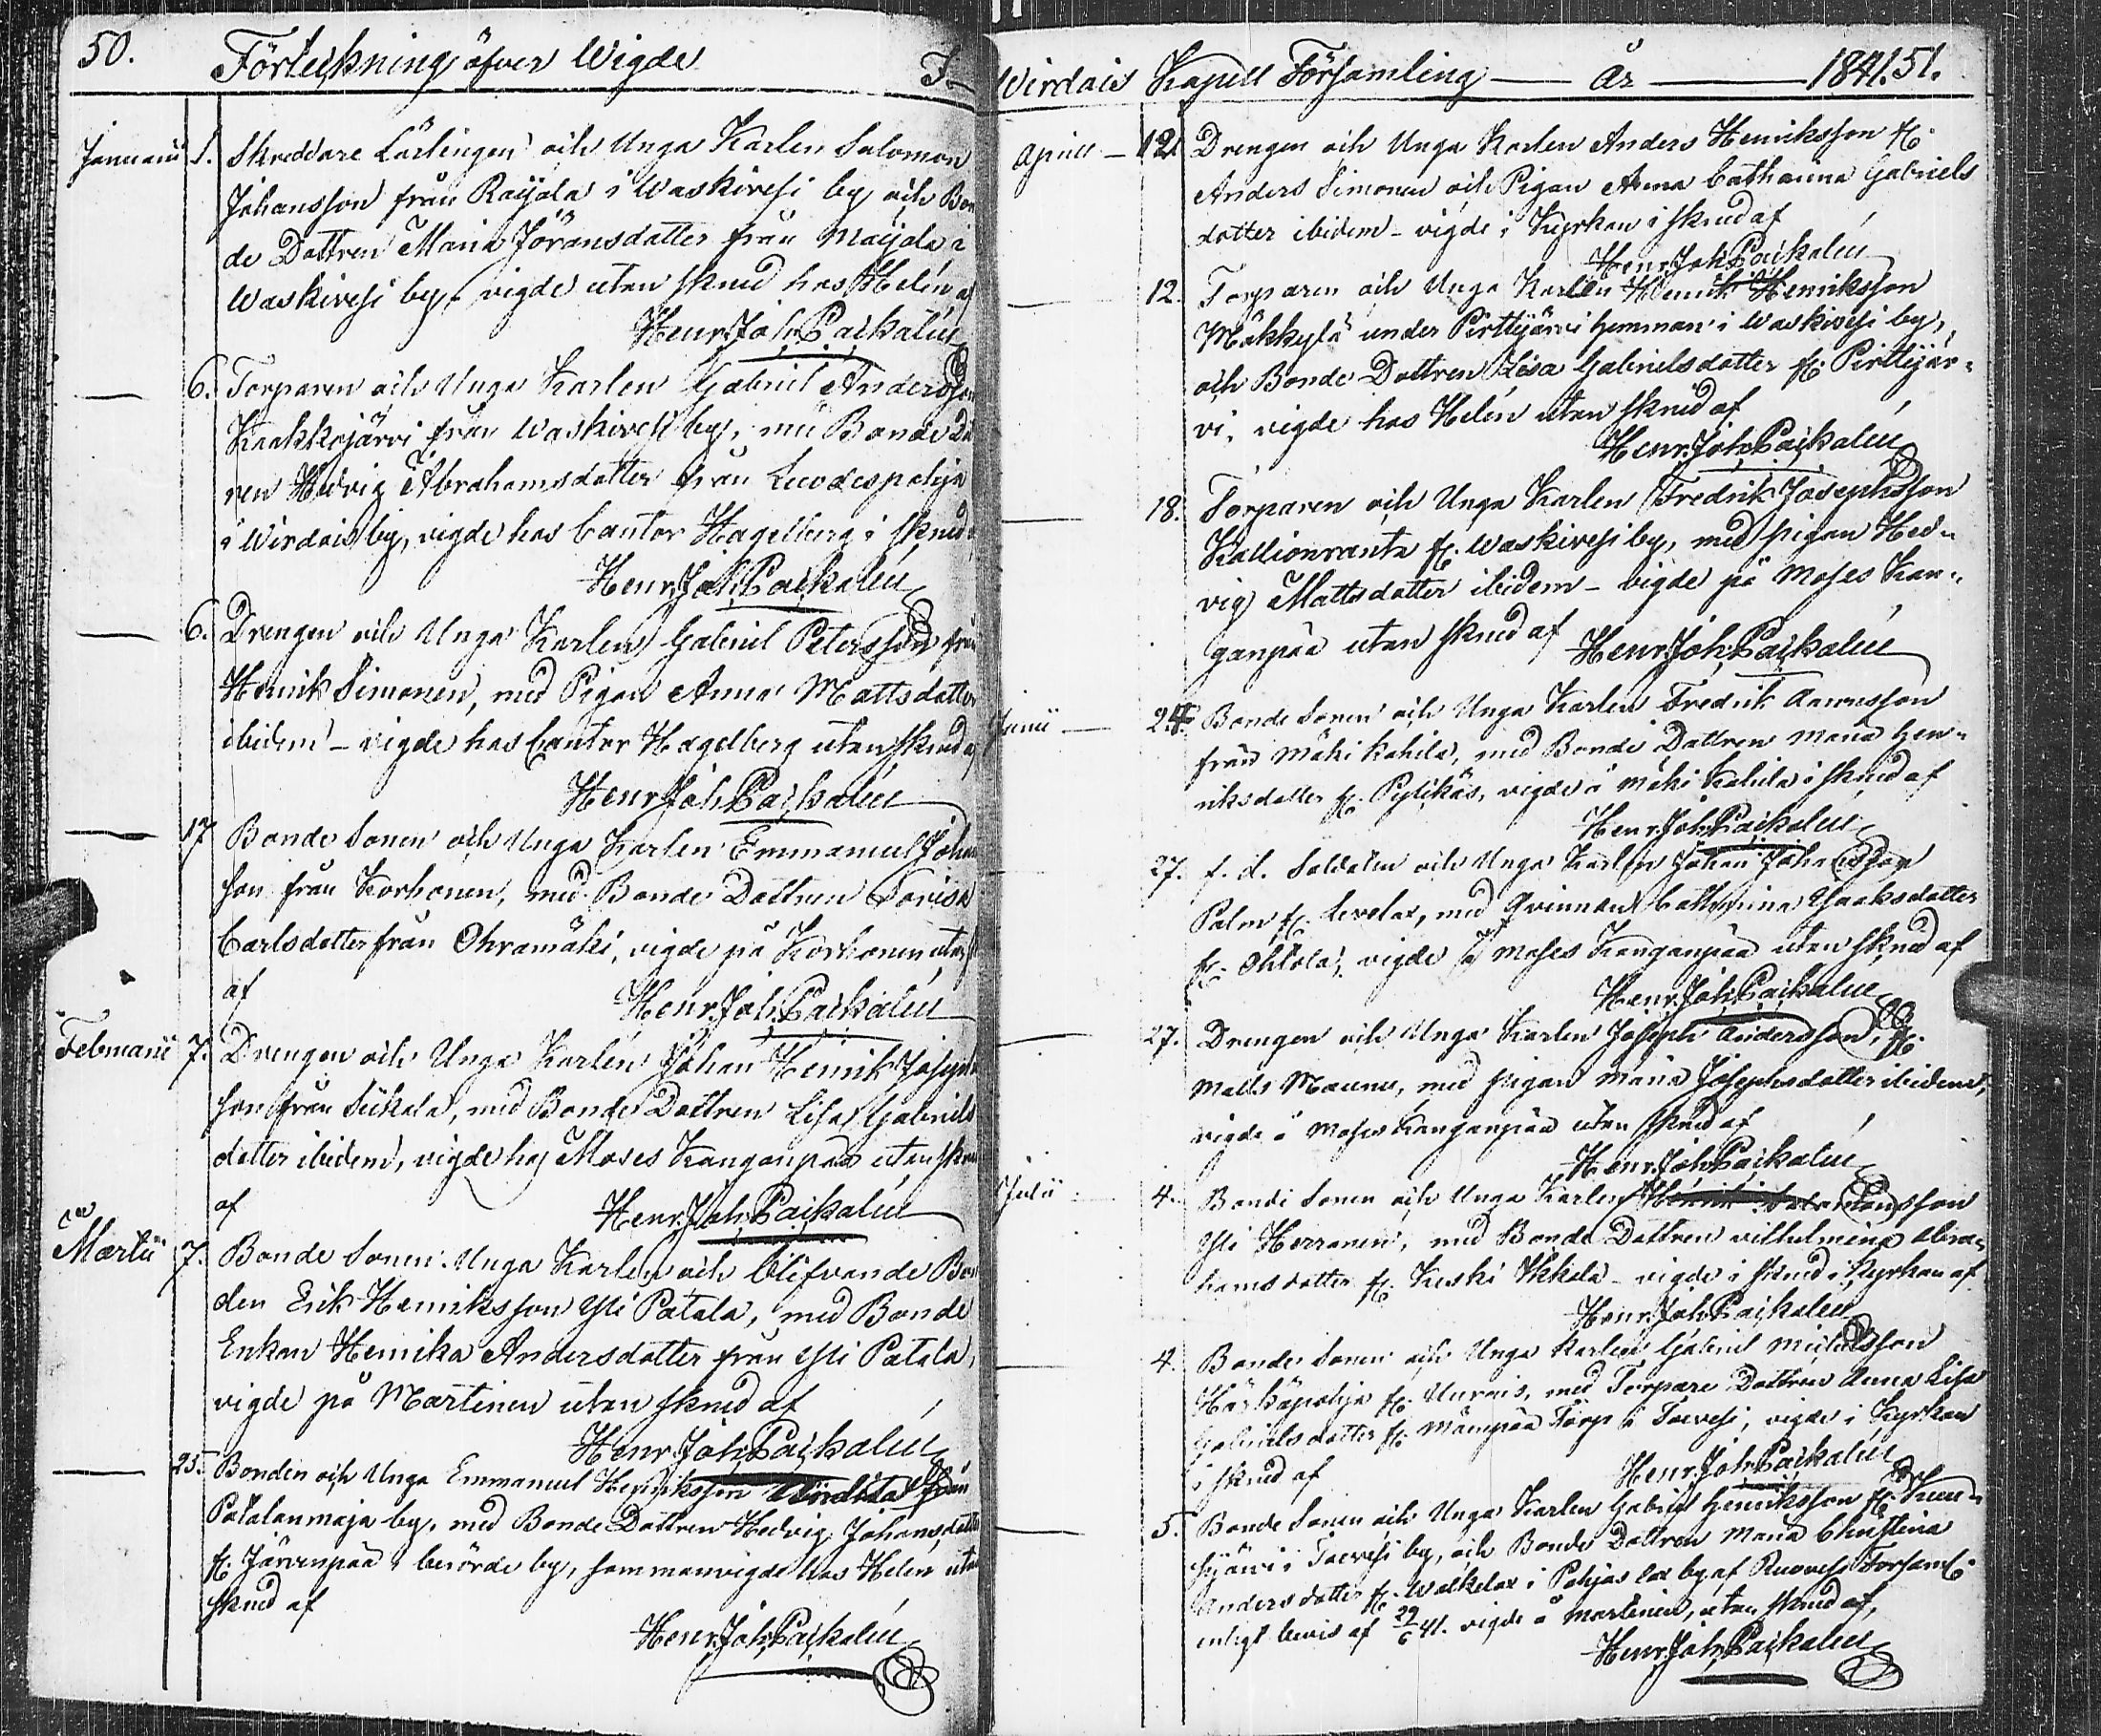 50. Förteckning öfver Wigde I
Januarii 1. Skreddare Lärlingen och Unga Karlen Salomon
Johansson från Rajala i Waskivesi by och Bon
de Dottren Maria Jöransdotter från Maijala i
Waskivesi by, vigde utan skrud hos Helén af
Henr. Joh. Paikalén
6. Torparen och Unga Karlen Gabriel Andersson
Kaakkojärvi från Waskivesi by, med Bonde Dot
ren Hedvig Abrahamsdotter från Luodespohja
i Wirdois by, vigde hos Cantor Hagelberg i skrud
Henr. Joh. Paikalén
6. Drengen och Unga Karlen Gabriel Petersson från
Henrik Simonen, med Pigan Anna Mattsdotter
ibidem – vigde hos Cantor Hagelberg utan skrud af
Henr. Joh. Paikalén
17 Bonde Sonen och Unga Karlen Emmanuel Johan
son från Korhonen, med Bonde Dottren Lovisa
Carlsdotter från Ohramäki, vigde på Korhonen utan
af
Henr. Joh. Paikalén
Februarii 7. Drengen och Unga Karlen Johan Henrik Joseph
son från Siikala, med Bonde Dottren Lisa Gabriels
dotter ibidem, vigde hos Moses Kanganpää utan skru
af
Henr. Joh. Paikalén
Martii 7. Bonde Sonen Unga Karlen och blifvande Bon
den Erik Henriksson Yli Patala, med Bonde
Enkan Henrika Andersdotter från Yli Patala,
vigde på Martinen utan skrud af
Henr. Joh. Paikalén
25. Bonden och Unga Emmanuel Henriksson från
Patalanmaja by, med Bonde Dottren Hedvig Johansdotter
fr. Järvenpää i berörde by, sammanvigde hos Helén utan
skrud af
Henr. Joh. Paikalén
Wirdois Kapell Församling — År — 1841. 51.
Aprill — 12. Drengen och Unga Karlen Anders Henriksson fr.
Anders Simonen och Pigan Anna Catharina Gabriels
dotter ibidem – vigde i Kyrkan i skrud af
Henr. Joh. Paikalén
12. Torparen och Unga Karlen Henrik Henriksson
Mäkkylä under Pirttijärvi hemman i Waskivesi by,
och Bonde Dottren Lisa Gabrielsdotter fr. Pirttijär-
vi, vigde hos Helén utan skrud af
Henr. Joh. Paikalén
18. Torparen och Unga Karlen Fredrik Josephsson
Kallionranta fr. Waskivesi by, med pigan Hed-
vig Mattsdotter ibidem – vigde på Moses Kan-
ganpää utan skrud af
Henr. Joh. Paikalén
Junii — 24. Bonde Sonen och Unga Karlen Fredrik Aronsson
från Mäki Kahila, med Bonde Dottren Maria Hen-
riksdotter fr. Pylikäs, vigde å Mäki Kahila i skrud af
Henr. Joh. Paikalén
27. f. d. Soldaten och Unga Karlen Johan Johansson
Palm fr. Levelax, med Qvinnan Catharina Isaaksdotter
fr. Ohtola, vigde å Moses Kanganpää utan skrud af
Henr. Joh. Paikalén
27. Drengen och Unga Karlen Joseph Andersson fr.
Matts Maunu, med pigan Maria Josephsdotter ibidem,
vigde å Moses Kanganpää utan skrud af
Henr. Joh. Paikalén
Julii 4. Bonde Sonen och Unga Karlen Henrik Salomonsson
Yli Herranen, med Bonde Dottren Vilhelmina Abra-
hamsdotter fr. Keski Ikkela – vigde i skrud i Kyrkan af
Henr. Joh. Paikalén
4. Bonde Sonen och Unga Karlen Gabriel Michelsson
Härköpohja fr. Unrais, med Torpare Dottren Anna Lisa
Gabrielsdotter fr. Mämpää Torp i Toivesi, vigde i Kyrkan
i skrud af
Henr. Joh. Paikalén
5. Bonde Sonen och Unga Karlen Gabriel Henriksson fr.
i Toivesi by, och Bonde Dottren Maria Christina
Andersdotter fr. Walkelax i Pohjaslax by af Ruovesi Församl:
enligt bevis af 29/6 41. vigde å Martinen, utan skrud af,
Henr. Joh. Paikalén